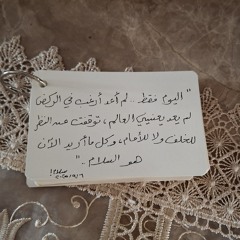 "اليوم فقط .. لم أعد أرغب في الركض
لم يعد يعنيني العالم، توقفت عن النظر
للخلف ولا للأمام، وكل ما أريد الآن
هو السلام .."